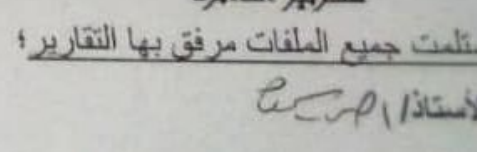 ستلمت جميع الملفات مرفق بها التقارير ؛
لأستاذ/